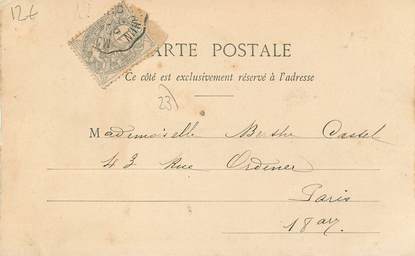 12€
CARTE POSTALE
Ce côté est exclusivement réservé à l'adresse
23)
Mademoiselle Berthe Castel
43 Rue Ordener
Paris
18 ar